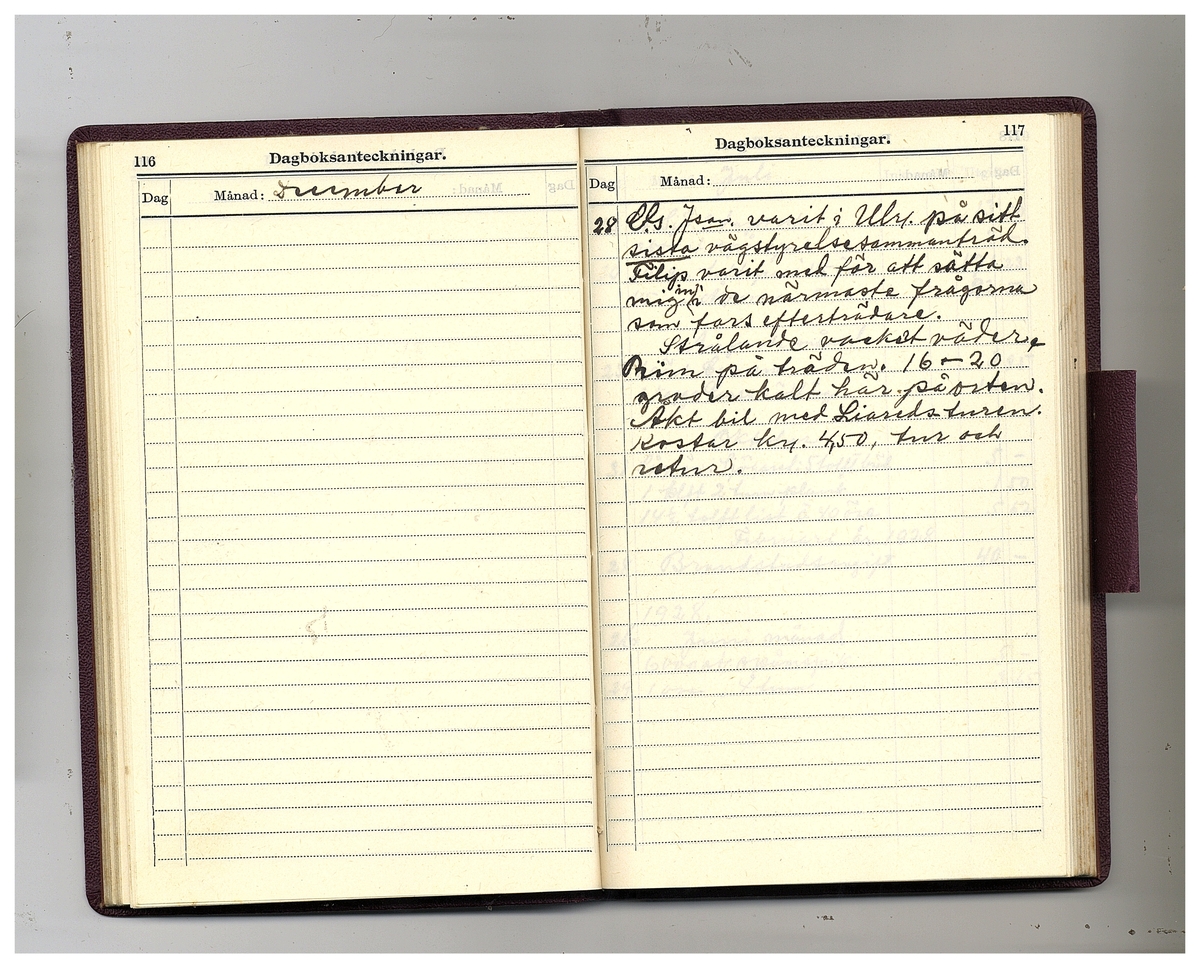 116
Dagboksanteckningar.
Dag
Månad: December
117
Dagboksanteckningar.
Dag
Månad:
28 C.G. Json. varit i Ulr. på sitt
sista vägstyrelsesammanträd.
Filip varit med för att sätta
mig in i de närmaste frågorna
som fars efterträdare.
Strålande vackert väder.
Rim på träden. 16 – 20
grader kallt här på orten.
Åkt bil med Liaredsturen.
Kostar kr. 4,50, tur och
retur.